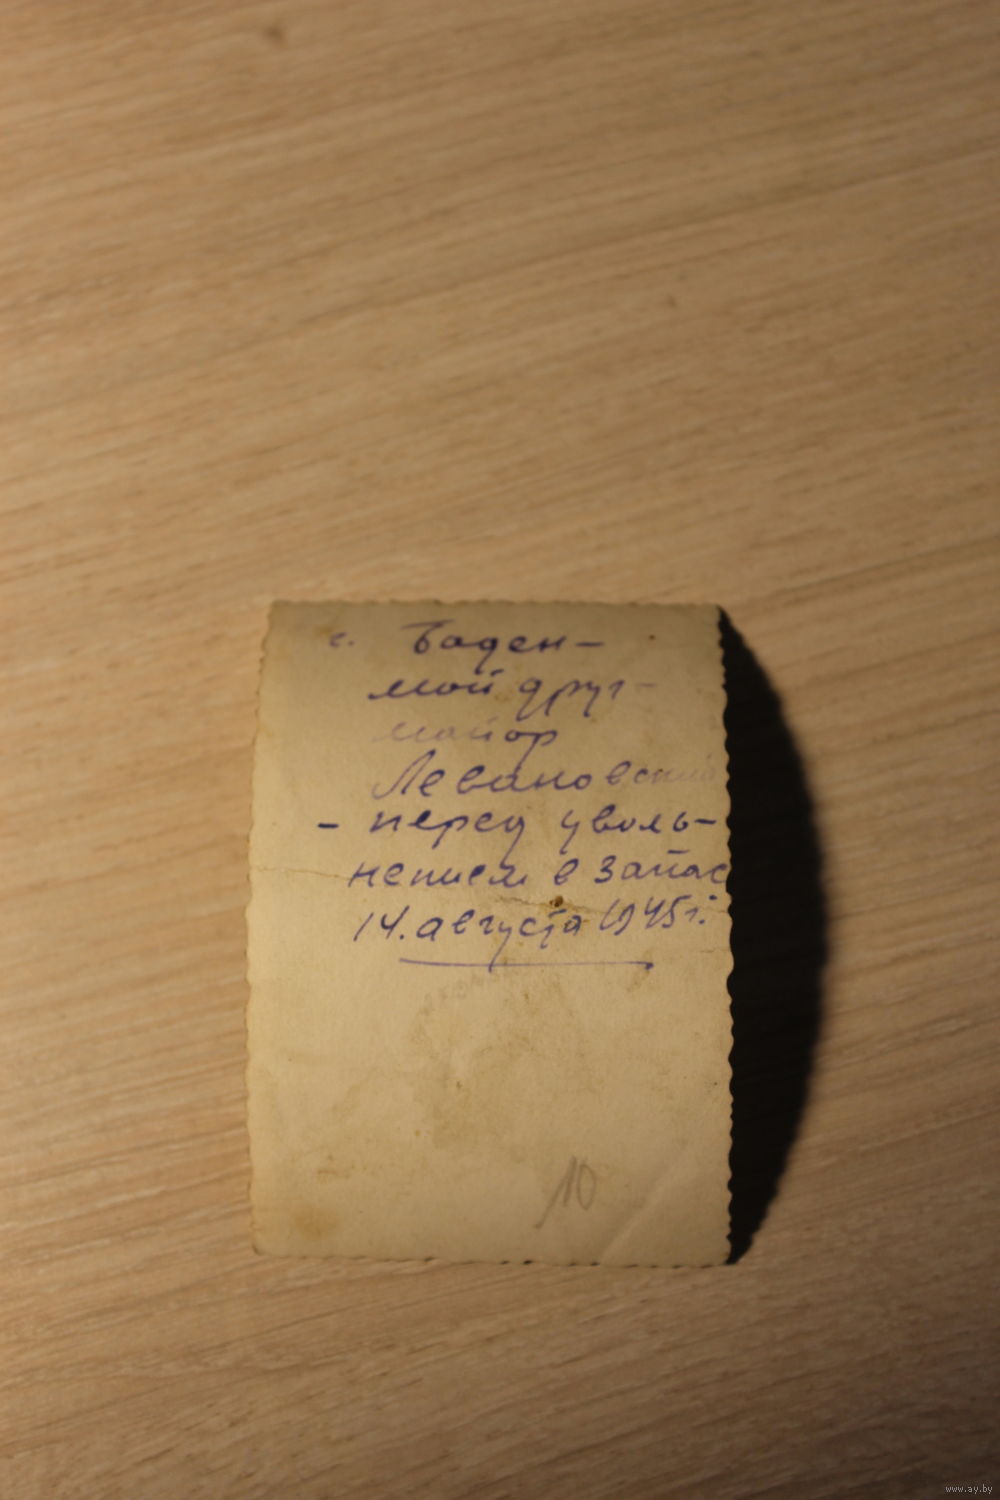 г. Баден -
мой друг -
майор
Левановский
- перед уволь-
нением в запас
14. августа 1945 г.
10
www.ay.by